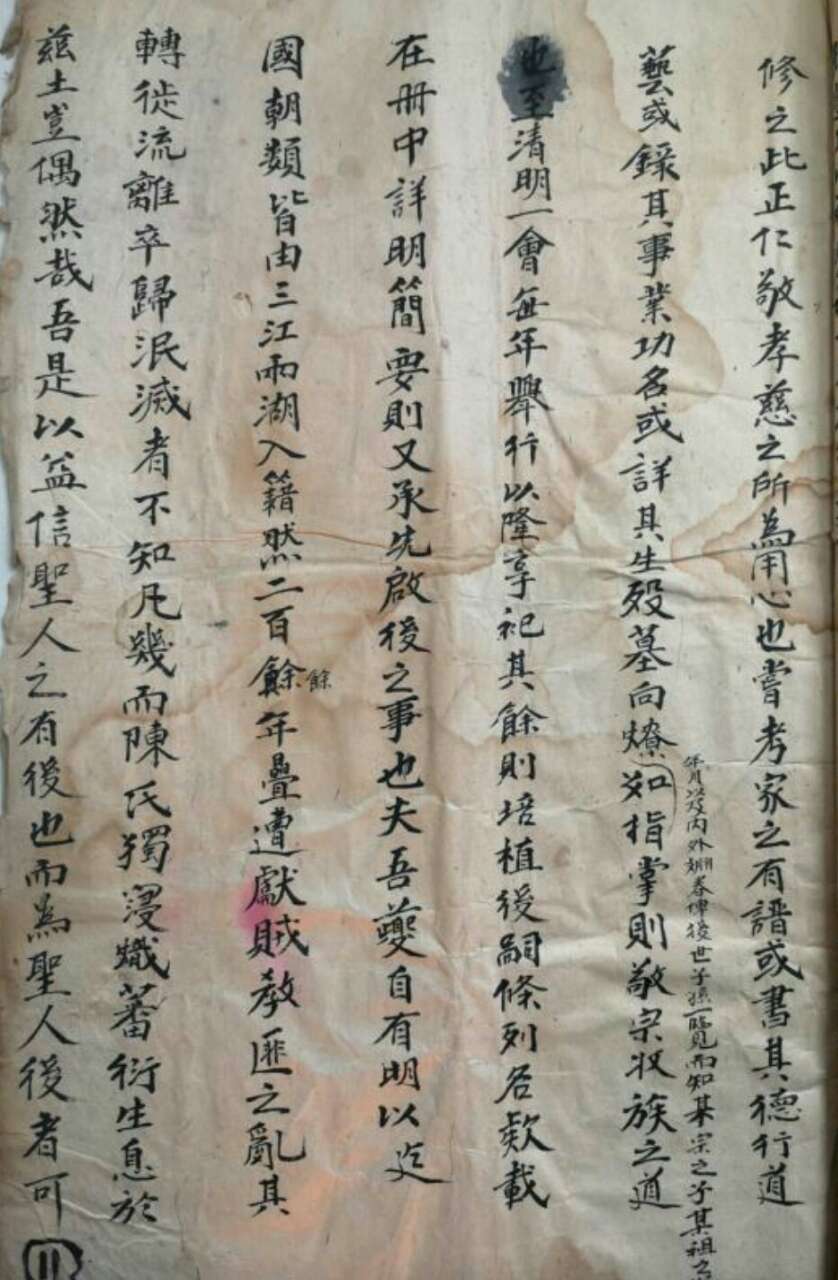 修之此正仁敬孝慈之所為用心也嘗考家之有譜或書其德行道
年月以及內外姻眷俾後世子孫一覽而知某宗之子某祖之
藝或錄其事業功名或詳其生歿墓向燎如指掌則敬宗收族之道
也至清明一會每年舉行以隆享祀其餘則培植後嗣條列各欵載
在冊中詳明簡要則又承先啟後之事也夫吾夔自有明以迄
餘
國朝類皆由三江兩湖入籍然二百餘年疊遭獻賊教匪之亂其
轉徙流離卒歸泯滅者不知凡幾而陳氏獨寖熾蕃衍生息於
茲土豈偶然哉吾是以益信聖人之有後也而為聖人後者可
11